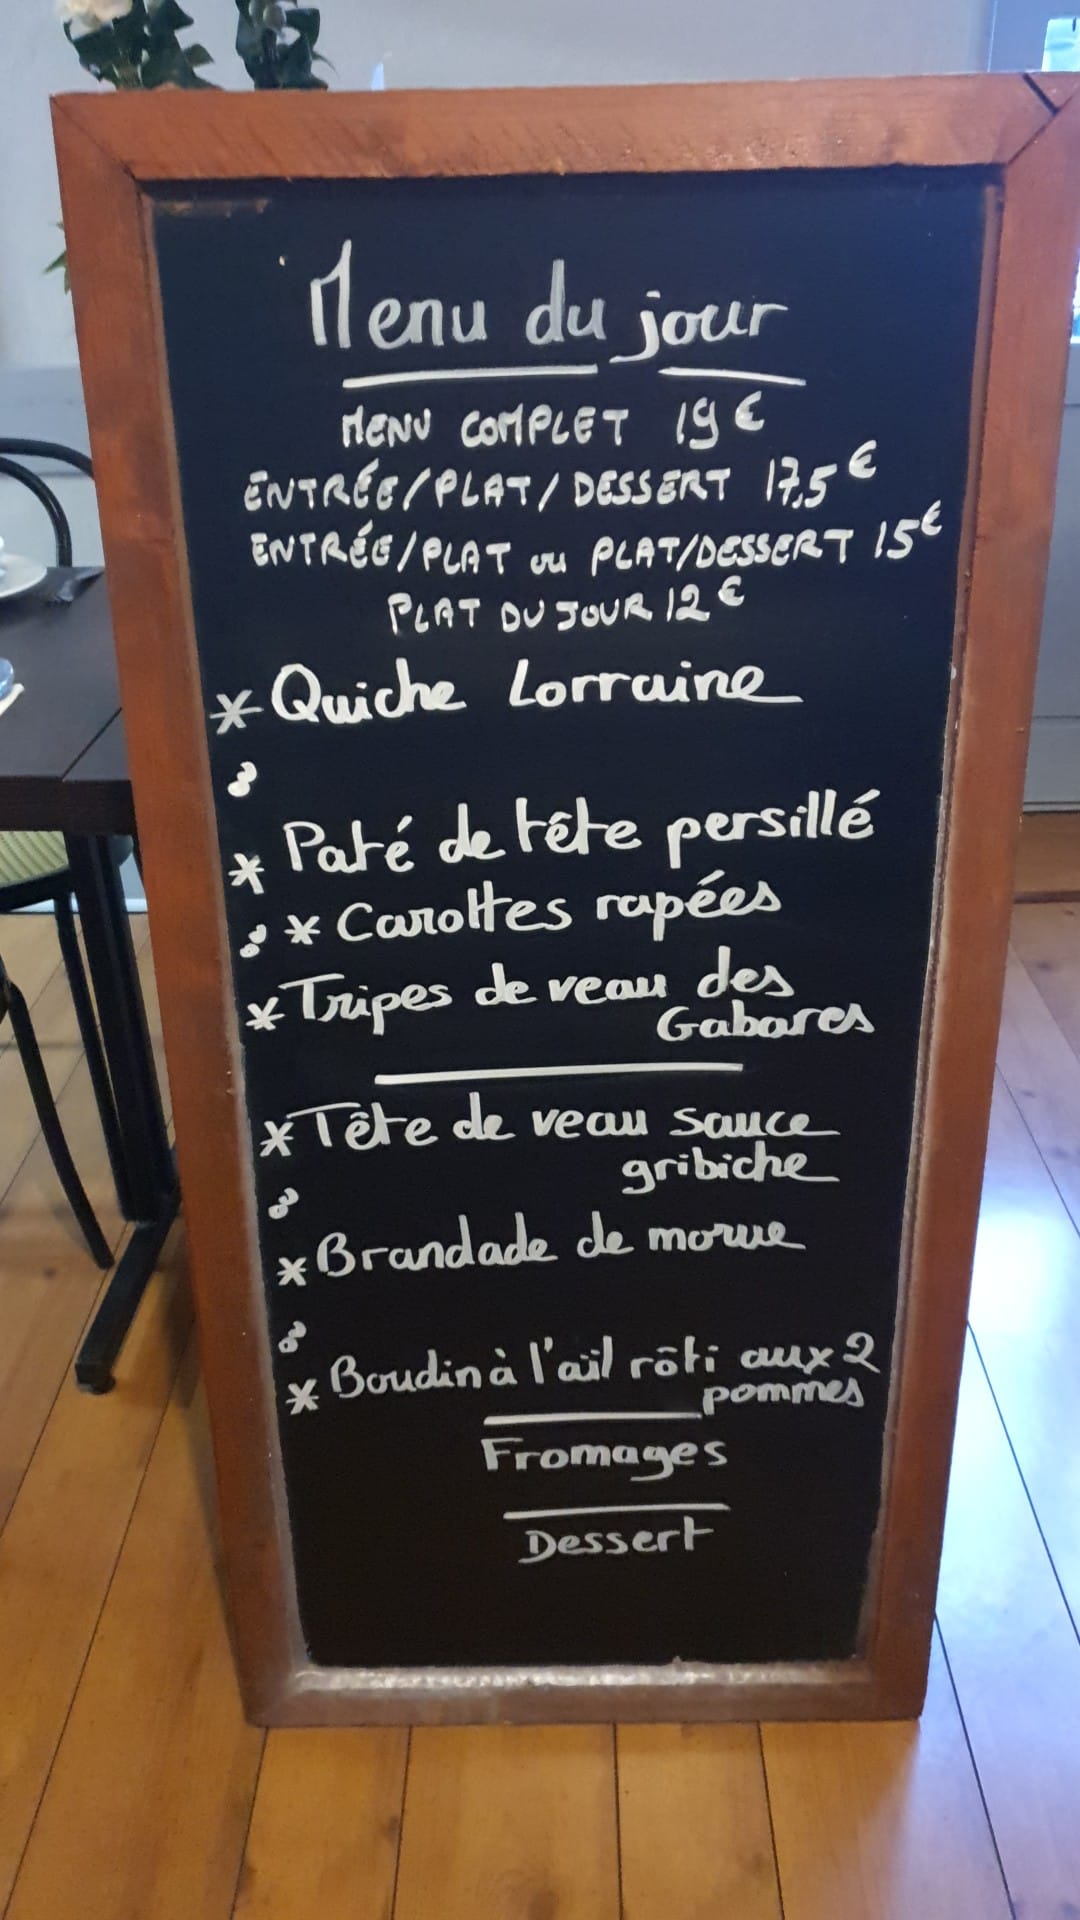 Menu du jour
MENU COMPLET 19 €
ENTRÉE/PLAT/DESSERT 17,5 €
ENTRÉE/PLAT ou PLAT/DESSERT 15 €
PLAT DU JOUR 12 €
* Quiche Lorraine
* Paté de tête persillé
* Carottes rapées
* Tripes de veau des
Gabares
* Tête de veau sauce
gribiche
* Brandade de morue
* Boudin à l'aïl rôti aux 2
pommes
Fromages
Dessert